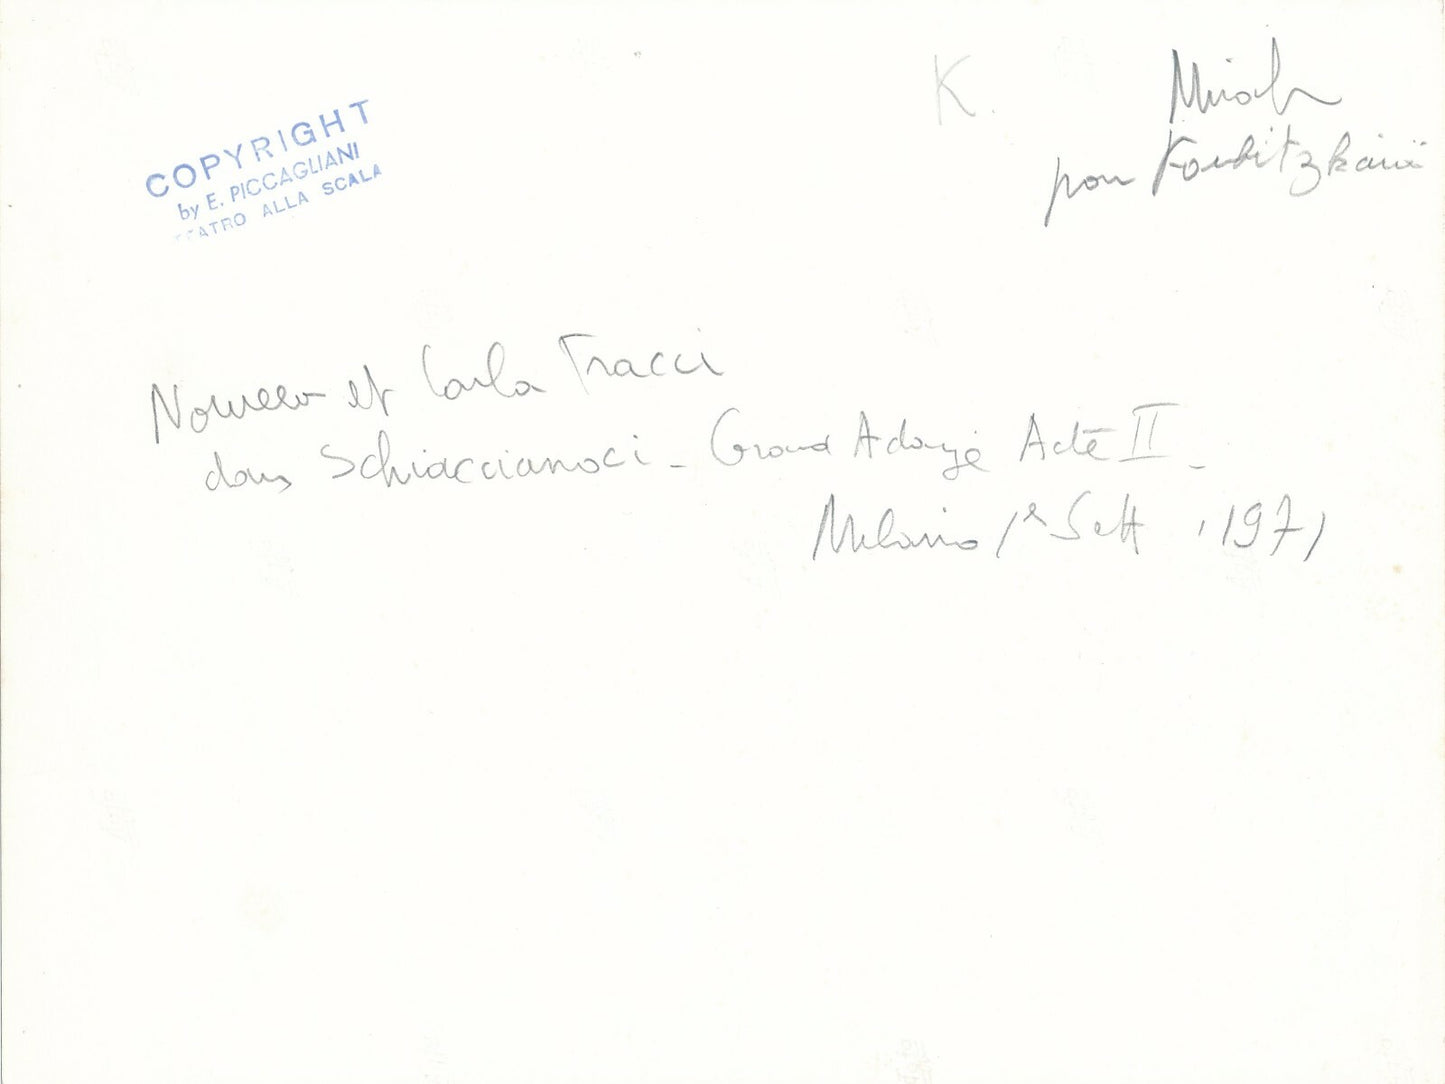 COPYRIGHT
by E. PICCAGLIANI
TEATRO ALLA SCALA
K.
pour
et Carla Fracci
dans Schiaccianoci - Grand Adage Acte II -
Milano 1e Sett. 1971